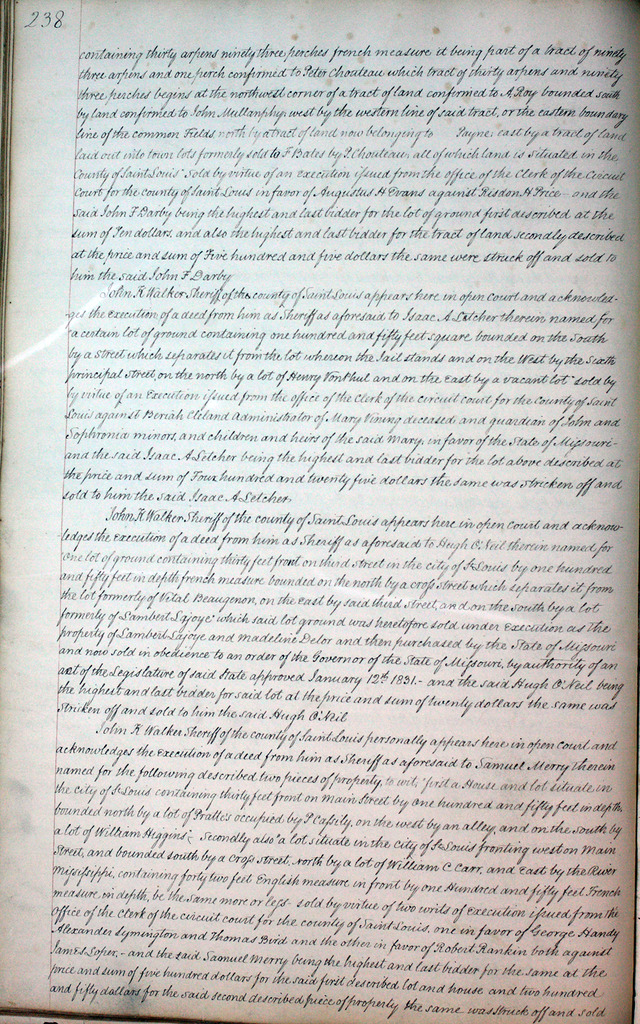 238
containing thirty arpens ninety three perches french measure it being part of a tract of ninety
three arpens and one perch confirmed to Peter Chouteau which tract of thirty arpens and ninety
three perches begins at the northwest corner of a tract of land confirmed to A. Roy bounded south
by land confirmed to John Mullanphy west by the western line of said tract, or the eastern boundary
line of the common Fields north by a tract of land now belonging to Payne; east by a tract of land
laid out into town lots formerly sold to F Bates by P. Chouteau, all of which land is situated in the
County of Saint Louis" Sold by virtue of an execution issued from the office of the Clerk of the Circuit
Court for the county of Saint Louis in favor of Augustus H Evans against Risdon H Price — and the
said John F Darby being the highest and last bidder for the lot of ground first described at the
sum of Ten dollars, and also the highest and last bidder for the tract of land secondly described
at the price and sum of Five hundred and five dollars the same were struck off and sold to
him the said John F. Darby
John K Walker Sheriff of the county of Saint Louis appears here in open court and acknowled-
ges the execution of a deed from him as Sheriff as aforesaid to Isaac A Letcher therein named for
a certain lot of ground containing one hundred and fifty feet square bounded on the South
by a Street which separates it from the lot whereon the Jail stands and on the West by the Sixth
principal Street, on the north by a lot of Henry Von Phul and on the East by a vacant lot" sold by
by virtue of an Execution issued from the office of the Clerk of the circuit court for the County of Saint
Louis against Beriah Cleland administrator of Mary Vining deceased and guardian of John and
Sophronia minors, and children and heirs of the said Mary, in favor of the State of Missouri-
and the said Isaac A. Letcher being the highest and last bidder for the lot above described at
the price and sum of Four hundred and twenty five dollars the same was stricken off and
sold to him the said Isaac A Letcher.
John K Walker Sheriff of the county of Saint Louis appears here in open court and acknow-
-ledges the execution of a deed from him as Sheriff as aforesaid to Hugh O'Neil therein named, for
"One lot of ground containing thirty feet front on third street in the city of St Louis by one hundred
and fifty feet in depth french measure bounded on the north by a cross street which separates it from
the lot formerly of Vital Beaugenon, on the East by said third Street, and on the South by a lot
formerly of Lambert Lajoye" which said lot ground was heretofore sold under Execution as the
property of Lambert Lajoye and Madeline Delor and then purchased by the State of Missouri
and now sold in obedience to an order of the Governor of the State of Missouri, by authority of an
act of the Legislature of said State approved January 12th 1831.- and the said Hugh O'Neil being
the highest and last bidder for said lot at the price and sum of twenty dollars the same was
striken off and sold to him the said Hugh O'Neil
John K Walker Sheriff of the county of Saint Louis personally appears here in open court and
acknowledges the Execution of a deed from him as Sheriff as aforesaid to Samuel Merry therein
named for the following described two pieces of property, to wit; "first a House and lot situate in
the city of St Louis containing thirty feet front on Main Street by One hundred and fifty feet in depth,
bounded north by a lot of Prattes occupied by P Cassily, on the west by an alley, and on the South by
a lot of William Higgins; Secondly also "a lot situate in the city of St Louis fronting west on Main
Street, and bounded south by a cross Street, north by a lot of William C. Carr, and East by the River
Mississippi, containing forty two feet English measure in front by one Hundred and fifty feet French
measure, in depth, be the same more or less- sold by virtue of two writs of execution issued from the
Office of the Clerk of the circuit court for the county of Saint Louis, one in favor of George Handy
Alexander Symington and Thomas Bird and the other in favor of Robert Rankin both against
James Loper,- and the said Samuel Merry being the highest and last bidder for the same at the
price and sum of five hundred dollars for the said first described lot and house and two hundred
and fifty dollars for the said second described piece of property the same was Struck off and sold